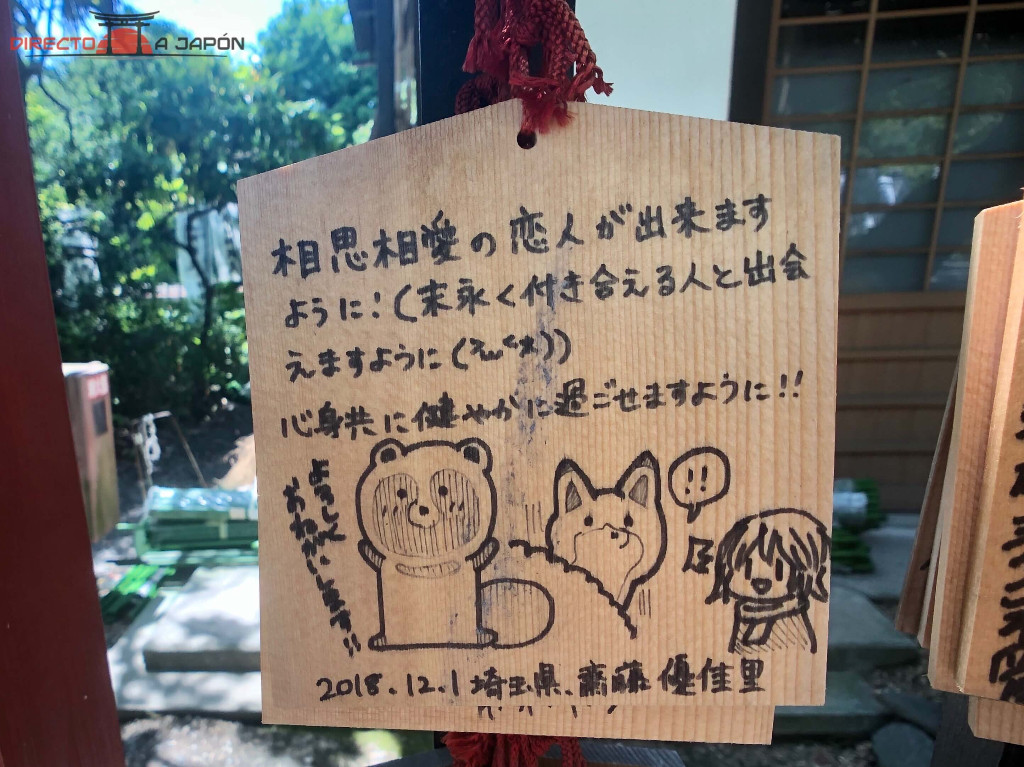 DIRECTO A JAPÓN
相思相愛の恋人が出来ます
ように!(末永く付き合える人と出会
えますように
心身共に健やかに過ごせますように!!
よろしく
おねがいします!!
!!
2018.12.1 埼玉県. 齋藤 優佳里